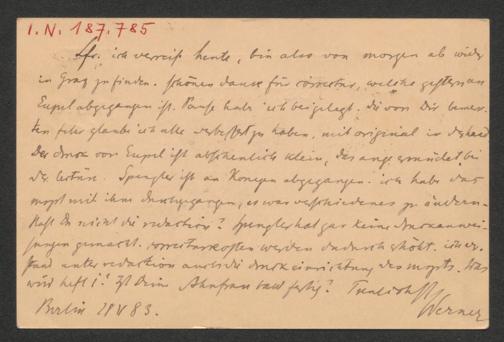 I.N. 187.785
Lfr. ich verreise heute, bin also von morgen ab wieder
in Graz zu finden. schönen dank für correctur, welche gestern an
Eupel abgegangen ist. Pause habe ich beigelegt. die von Dir bemerk-
ten feler glaube ich alle verbessert zu haben, mit original in der hand
Der druck von Eupel ist abscheulich klein, das auge ermüdet bei
der lectüre. Spengler ist an Konegen abgegangen. ich habe das
mspt mit ihm durchgegangen, es war verschiedenes zu ändern.
Hast Du nicht die redaction? Spengler hat gar keine druckanwei-
sungen gemacht. correcturkosten werden dadurch erhöht. ich ver-
stand unter redaction auch die druckeinrichtung des mspts. Was
wird heft 1? Ist Deine Ahnfrau bald fertig?
Berlin 28 V 83. Werner